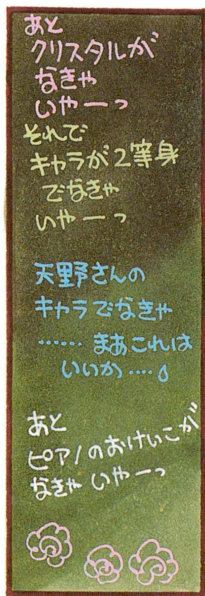 あと
クリスタルが
なきゃ
いやーっ
それで
キャラが2等身
でなきゃ
いやーっ
天野さんの
キャラでなきゃ
……まあこれは
いいか‥‥
あと
ピアノのおけいこが
なきゃいやーっ